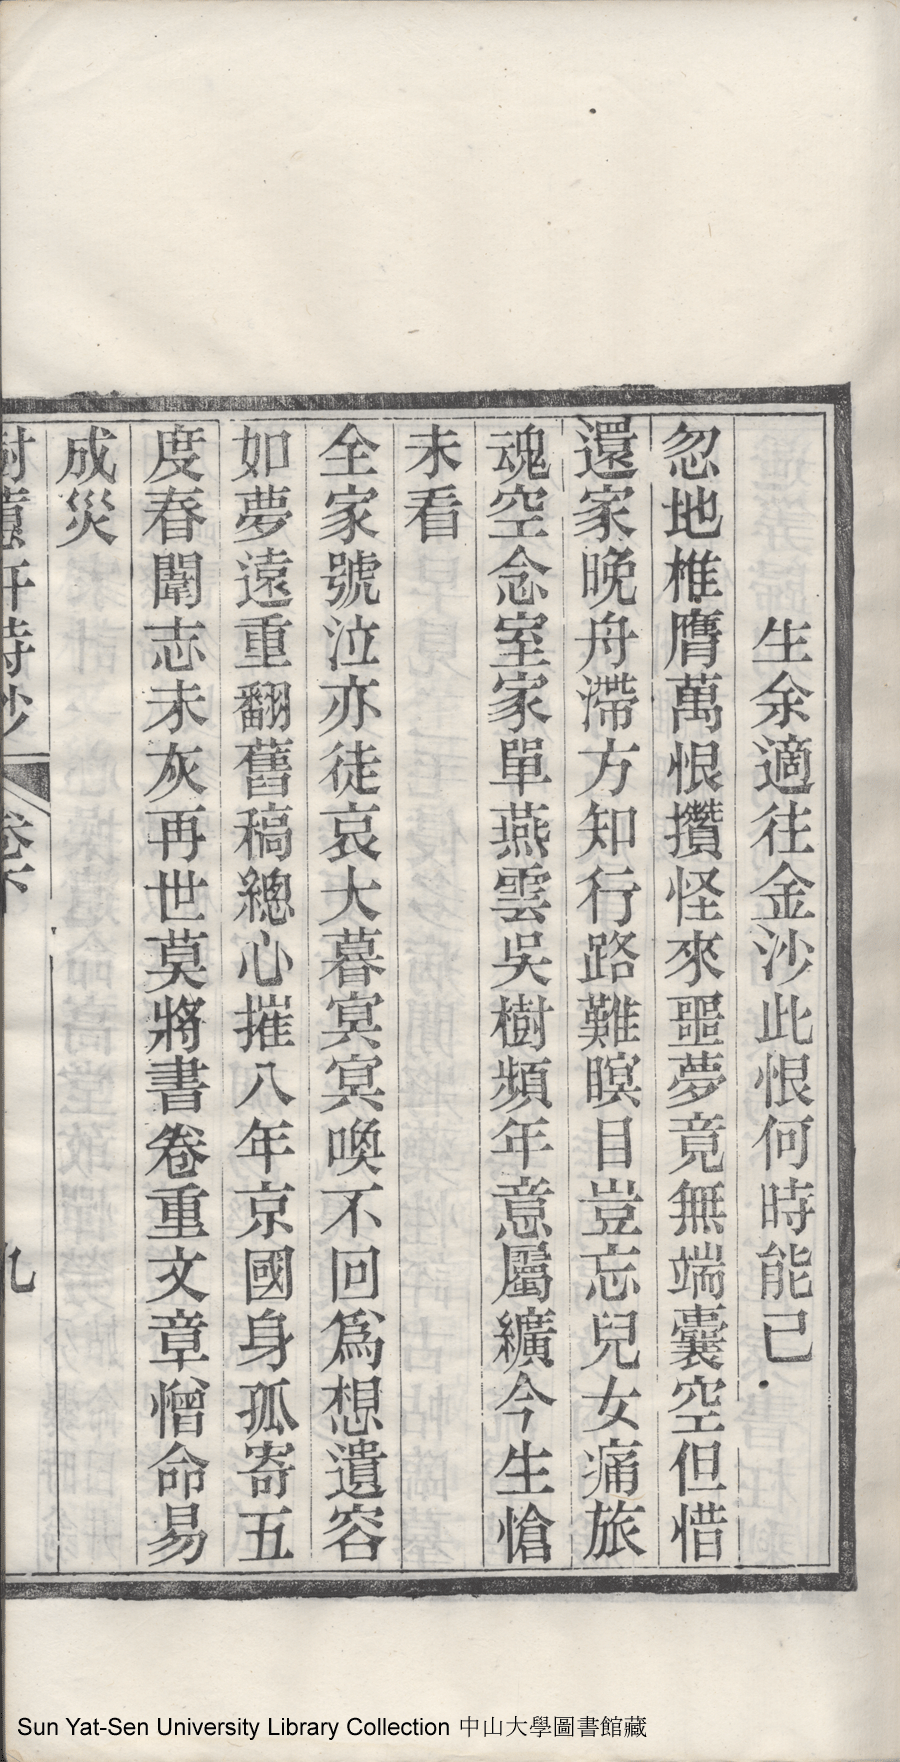 生余適往金沙此恨何時能已
忽地椎膺萬恨攢怪來噩夢竟無端囊空但惜
還家晚舟滯方知行路難瞑目豈忘兒女痛旅
魂空念室家單燕雲吳樹頻年意屬纊今生愴
未看
全家號泣亦徒哀大暮冥冥喚不回爲想遺容
如夢遠重翻舊稿總心摧八年京國身孤寄五
度春闈志未灰再世莫將書卷重文章憎命易
成災
樹蕙軒詩鈔 卷下 九
Sun Yat-Sen University Library Collection 中山大學圖書館藏